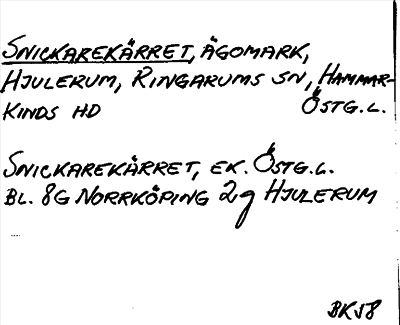 SNICKAREKÄRRET, ÄGOMARK,
HJULERUM, RINGARUMS SN, HAMMAR-
KINDS HD ÖSTG.L.
SNICKAREKÄRRET, EK. ÖSTG.L.
BL. 8G NORRKÖPING 2g HJULERUM
BKJ8